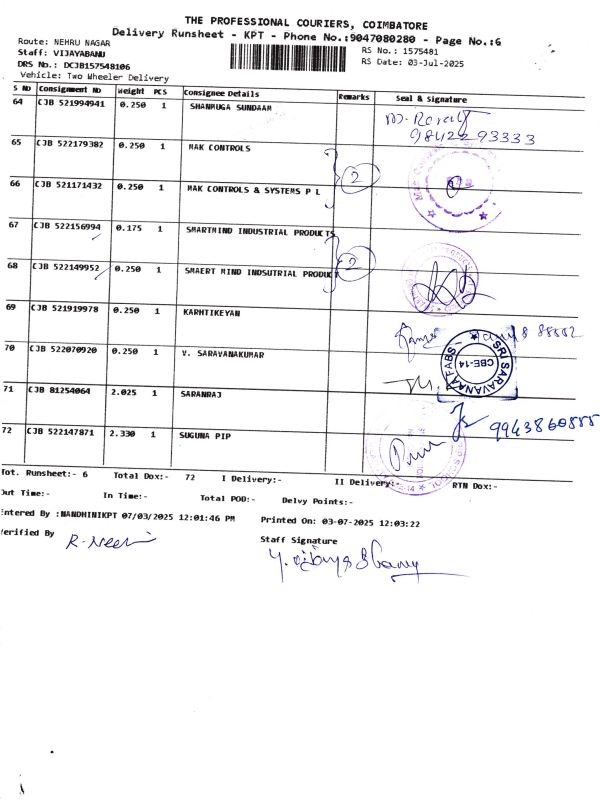 THE PROFESSIONAL COURIERS, COIMBATORE
Delivery Runsheet - KPT - Phone No.:9047080280 - Page No.:6
Route: NEHRU NAGAR
Staff: VIJAYABANU
RS No.: 1575481
DRS No.: DCJB157548106
RS Date: 03-Jul-2025
Vehicle: Two Wheeler Delivery
S No Consignment No Weight PCS Consignee Details Remarks Seal & Signature
64 CJB 521994941 0.250 1 SHANMUGA SUNDAAM
9842293333
65 CJB 522179382 0.250 1 MAK CONTROLS
2
66 CJB 521171432 0.250 1 MAK CONTROLS & SYSTEMS P L
67 CJB 522156994 0.175 1 SMARTMIND INDUSTRIAL PRODUCTS
2
68 CJB 522149952 0.250 1 SMAERT MIND INDSUTRIAL PRODUCT
69 CJB 521919978 0.250 1 KARHTIKEYAN
70 CJB 522070920 0.250 1 V. SARAVANAKUMAR
SRI SARAVANAA FABS
CBE-14
71 CJB 81254064 2.025 1 SARANRAJ
9943860855
72 CJB 522147871 2.330 1 SUGUNA PIP
Tot. Runsheet:- 6 Total Dox:- 72 I Delivery:- II Delivery:- RTN Dox:-
Out Time:- In Time:- Total POD:- Delvy Points:-
Entered By :NANDHINIKPT 07/03/2025 12:01:46 PM Printed On: 03-07-2025 12:03:22
Verified By
Staff Signature